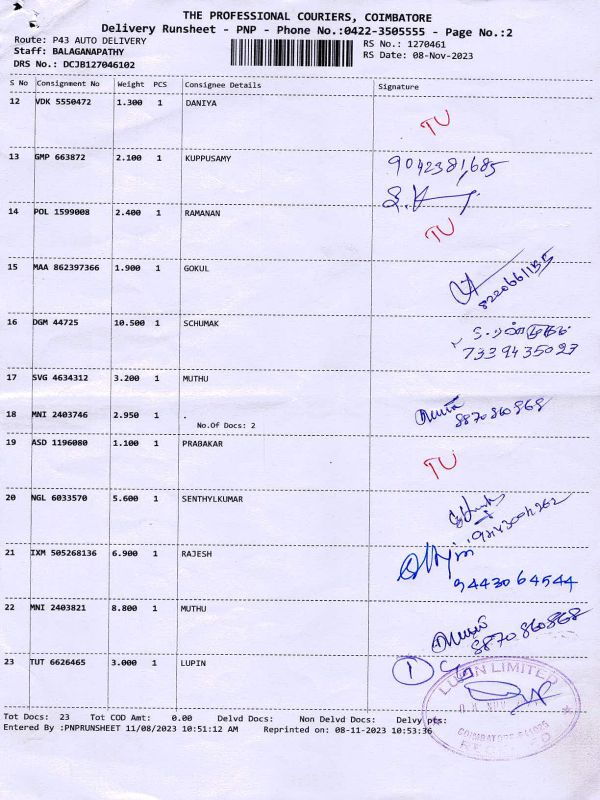 THE PROFESSIONAL COURIERS, COIMBATORE
Delivery Runsheet - PNP - Phone No.:0422-3505555 - Page No.:2
Route: P43 AUTO DELIVERY
RS No.: 1270461
Staff: BALAGANAPATHY
RS Date: 08-Nov-2023
DRS No.: DCJB127046102
S No Consignment No Weight PCS Consignee Details Signature
12 VDK 5550472 1.300 1 DANIYA
TU
13 GMP 663872 2.100 1 KUPPUSAMY
9042381685
14 POL 1599008 2.400 1 RAMANAN
TU
15 MAA 862397366 1.900 1 GOKUL
8220661135
16 DGM 44725 10.500 1 SCHUMAK
7339435027
17 SVG 4634312 3.200 1 MUTHU
18 MNI 2403746 2.950 1 .
8870860868
No.Of Docs: 2
19 ASD 1196080 1.100 1 PRABAKAR
TU
20 NGL 6033570 5.600 1 SENTHYLKUMAR
21 IXM 505268136 6.900 1 RAJESH
9443064544
22 MNI 2403821 8.800 1 MUTHU
8870860868
23 TUT 6626465 3.000 1 LUPIN
1
LUPIN LIMITED
COIMBATORE
Tot Docs: 23 Tot COD Amt: 0.00 Delvd Docs: Non Delvd Docs: Delvy pts:
Entered By :PNPRUNSHEET 11/08/2023 10:51:12 AM Reprinted on: 08-11-2023 10:53:36